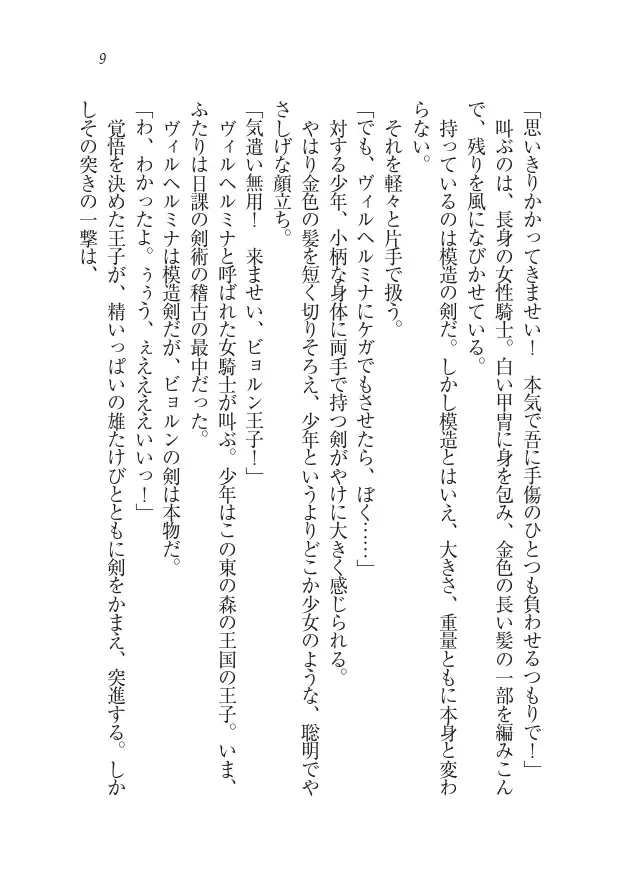 9
「思いきりかかってきませい！　本気で吾に手傷のひとつも負わせるつもりで！」
　叫ぶのは、長身の女性騎士。白い甲冑に身を包み、金色の長い髪の一部を編みこん
で、残りを風になびかせている。
　持っているのは模造の剣だ。しかし模造とはいえ、大きさ、重量ともに本身と変わ
らない。
　それを軽々と片手で扱う。
「でも、ヴィルヘルミナにケガでもさせたら、ぼく……」
　対する少年、小柄な身体に両手で持つ剣がやけに大きく感じられる。
　やはり金色の髪を短く切りそろえ、少年というよりどこか少女のような、聡明でや
さしげな顔立ち。
「気遣い無用！　来ませい、ビョルン王子！」
　ヴィルヘルミナと呼ばれた女騎士が叫ぶ。少年はこの東の森の王国の王子。いま、
ふたりは日課の剣術の稽古の最中だった。
　ヴィルヘルミナは模造剣だが、ビョルンの剣は本物だ。
「わ、わかったよ。ぅぅう、ぇえええええいいっ！」
　覚悟を決めた王子が、精いっぱいの雄たけびとともに剣をかまえ、突進する。しか
しその突きの一撃は、